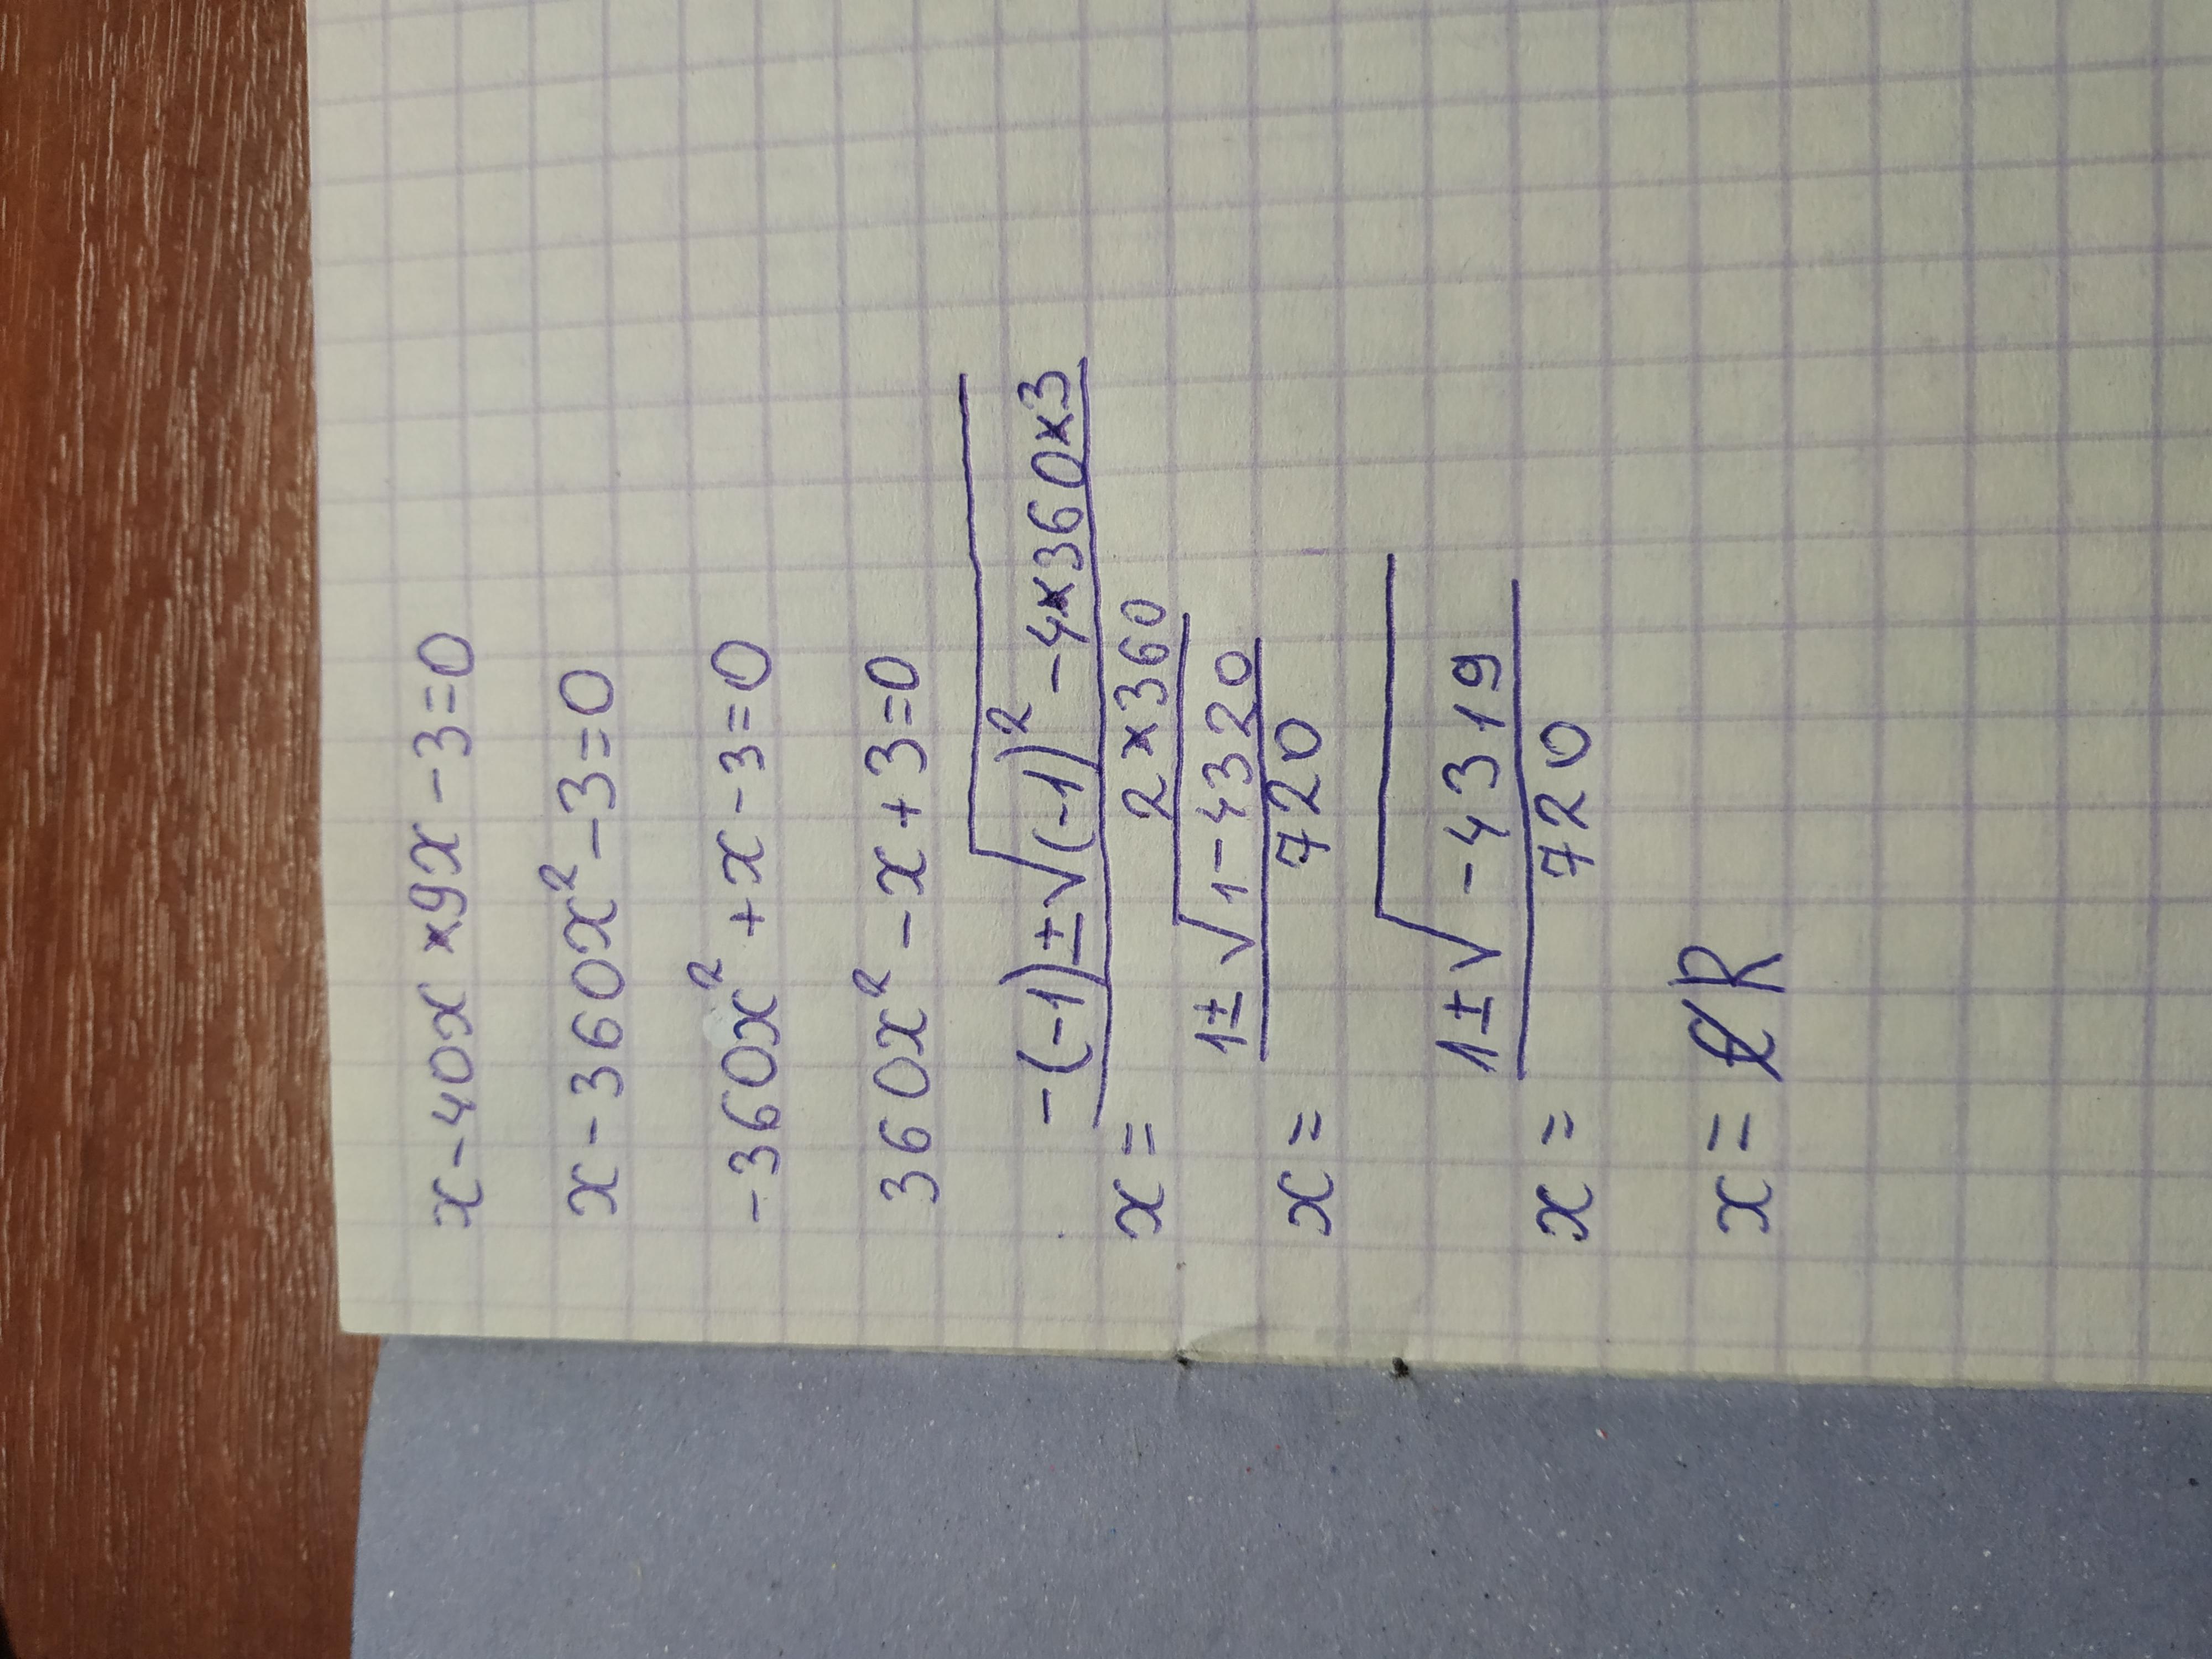 x-40x×9x-3=0
x-360x²-3=0
-360x²+x-3=0
360x²-x+3=0
x= -(-1)±√(-1)²-4×360×3
2×360
x= 1±√1-4320
720
x= 1±√-4319
720
x=∉R